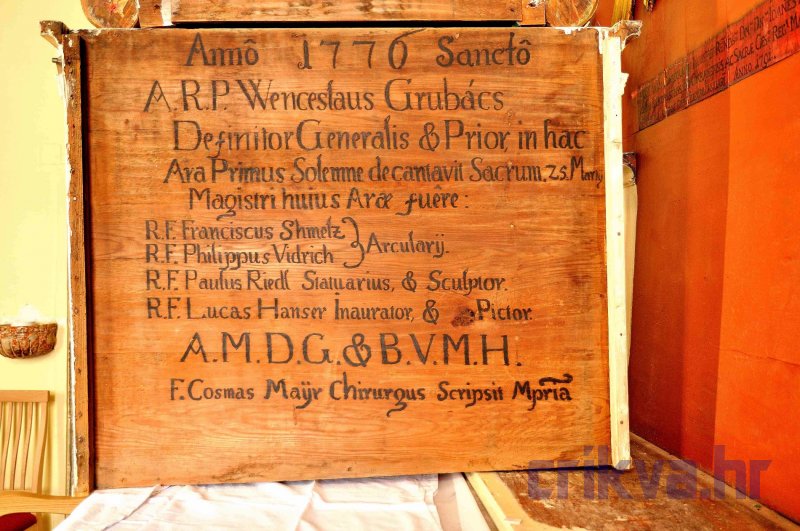 Annô 1776 Sanctô
A.R.P. Wenceslaus Grubács
Definitor Generalis & Prior, in hac
Ara Primus Solemne decantavit Sacrum. 25. Marty
Magistri huius Aræ fuêre:
R.F. Franciscus Shmelz
R.F. Philippus Vidrich } Arcularij.
R.F. Paulus Riedl Statuarius, & Sculptor.
R.F. Lucas Hanser Inaurator, & Pictor.
A.M.D.G. & B.V.M.H.
F. Cosmas Maÿr Chirurgus Scripsit Mpria
crikva.hr